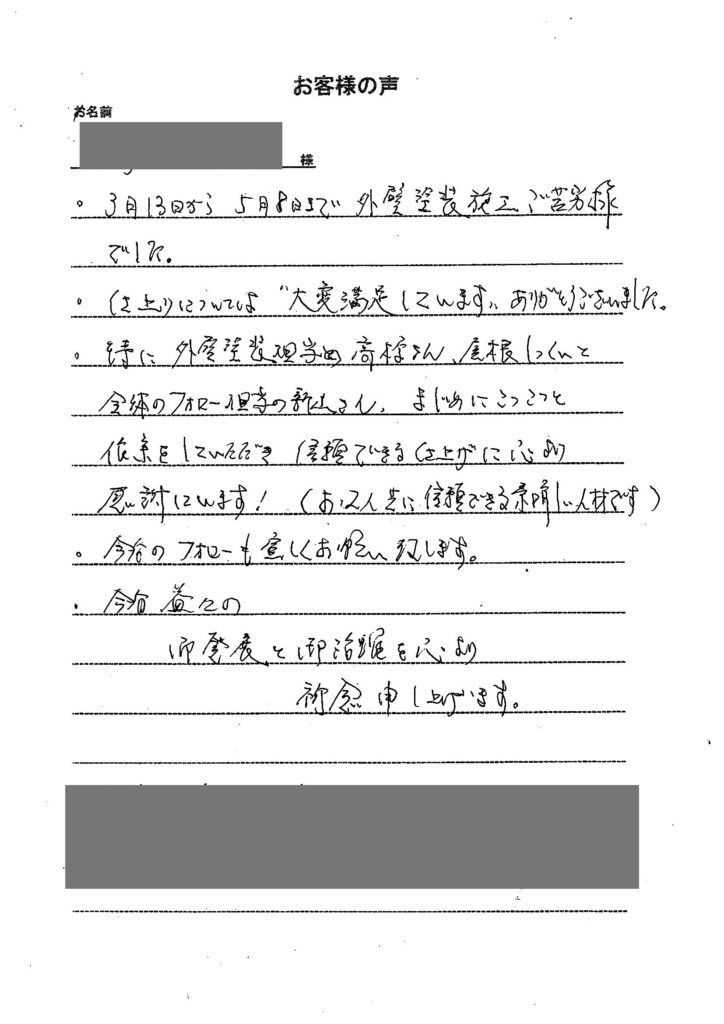 お客様の声
お名前
様
・3月13日から5月8日まで外壁塗装施工ご苦労様
でした。
・仕上りについては"大変満足しています"ありがとうございました。
・特に外壁塗装担当の高橋さん、屋根しっくいと
全体のフォロー担当の さん、まじめにこつこつと
作業をしていただき信頼できる仕上がに心より
感謝しています!(お2人共に信頼できる素晴しい人材です)
・今后のフォローも宜しくお願い致します。
・今后益々の
御発展と御活躍を心より
祈念申し上げます。